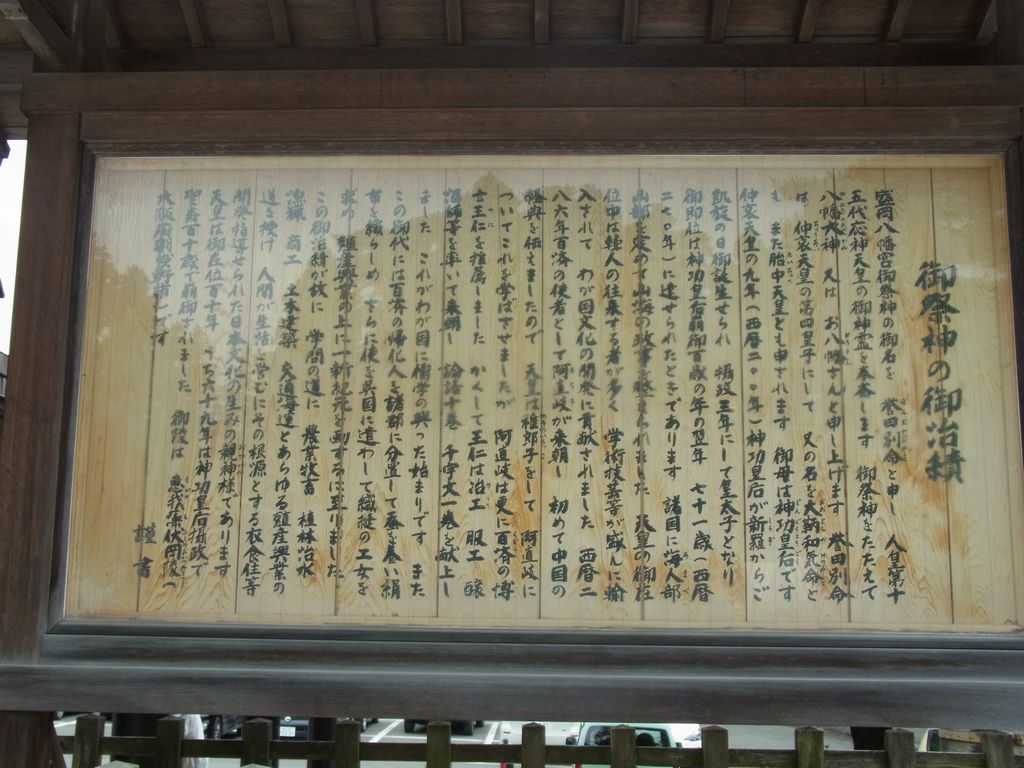 御祭神の御治績
盛岡八幡宮御祭神の御名を 誉田別命と申し 人皇第十
五代応神天皇の御神霊を奉斎します 御祭神をたたえて
八幡大神 又は お八幡さんと申し上げます 誉田別命
は 仲哀天皇の第四皇子にして 又の名を大鞆和気命と
も また胎中天皇とも申されます 御母は神功皇后です
仲哀天皇の九年(西暦二〇〇年)神功皇后が新羅からご
凱旋の日御誕生せられ 摂政三年にして皇太子となり
御即位は神功皇后崩御百歳の年の翌年 七十一歳(西暦
二七〇年)に達せられたときであります 諸国に海人部
山部を定めて山海の政事を整えられました 天皇の御在
位中は韓人の往来する者が多く 学術技芸等が盛んに輸
入されて わが国文化の開発に貢献されました 西暦二
八六年百済の使者として阿直岐が来朝し 初めて中国の
経典を伝えましたので 天皇は稚郎子をして 阿直岐に
ついてこれを学ばさせましたが 阿直岐は更に百済の博
士王仁を推薦しました かくして王仁は冶工 服工 醸
酒師等を率いて来朝し 論語十巻 千字文一巻を献上し
ました これがわが国に儒学の興った始まりです また
この御代には百済の帰化人を諸郡に分置して蚕を養い絹
布を織らしめ さらに使を呉国に遣わして織縫の工女を
求め 殖産興業の上に一新紀元を画するに至りました
この御治績が故に 学問の道に 農業牧畜 植林治水
漁猟 商工 土木建築 交通海運とあらゆる殖産興業の
道を授け 人間が生活を営むにその根源とする衣食住等
開発指導せられた日本文化の生みの親神様であります
天皇は御在位百十年 うち六十九年は神功皇后摂政で
聖寿百十歳で崩御されました 御陵は 恵我藻伏岡陵へ
大阪府羽曳野市 です
謹書